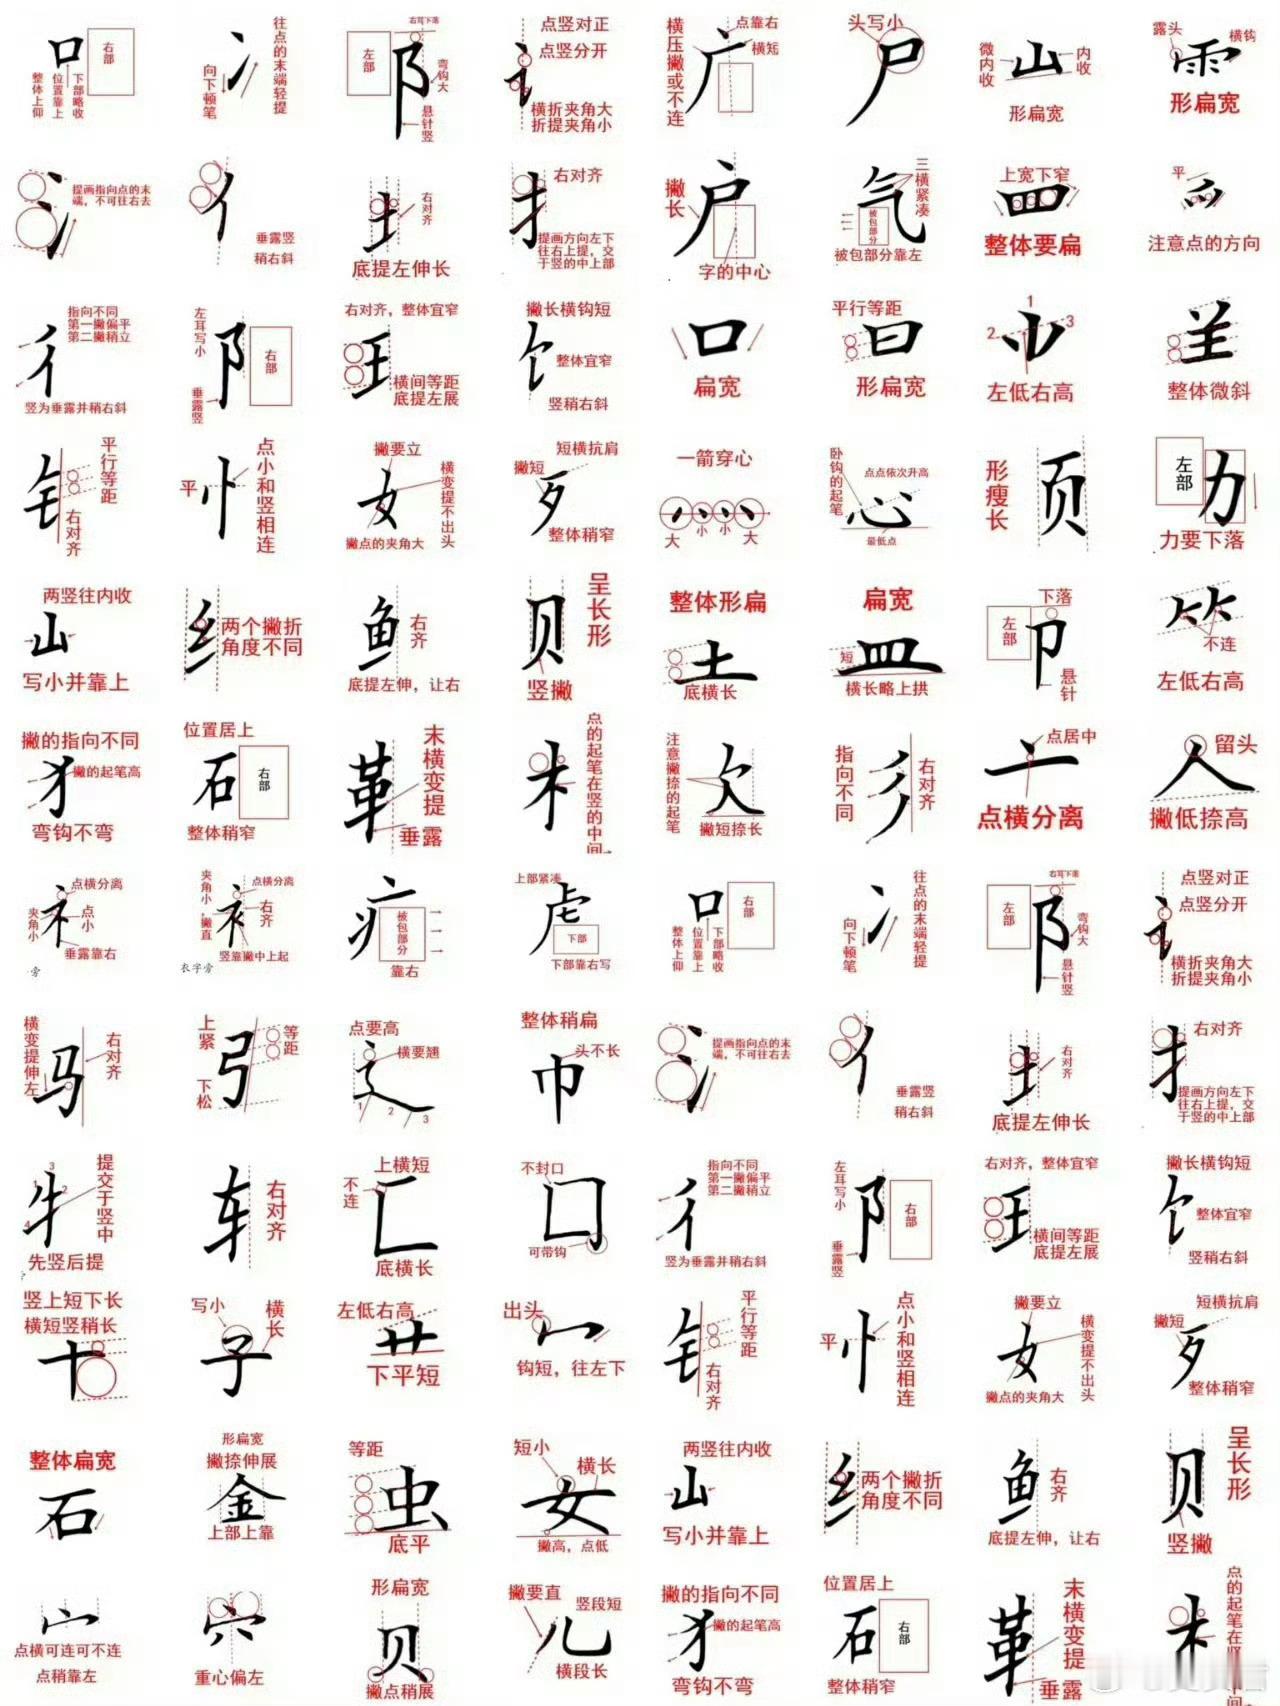 口 右部
整体上仰
位置靠上
下部略收
冫
往点的末端轻提
向下顿笔
右耳下落
左部 阝
弯钩大
悬针竖
讠
点竖对正
点竖分开
横折夹角大
折提夹角小
横压撇或不连
广
点靠右
横短
头写小
尸
微内收
山
内收
形扁宽
露头
横钩
形扁宽
氵
提画指向点的末
端,不可往右去
亻
垂露竖
稍右斜
右对齐
底提左伸长
扌
右对齐
提画方向左下
往右上提,交
于竖的中上部
撇长
户
字的中心
气
三横紧凑
被包部分
被包部分靠左
上宽下窄
罒
整体要扁
平
注意点的方向
彳
指向不同
第一撇偏平
第二撇稍立
竖为垂露并稍右斜
左耳写小
阝 右部
垂露竖
右对齐,整体宜窄
横间等距
底提左展
撇长横钩短
饣
整体宜窄
竖稍右斜
口
扁宽
平行等距
日
形扁宽
1
2
3
左低右高
整体微斜
钅
平行等距
右对齐
忄
点小和竖相连
平
撇要立
女
横变提不出头
撇点的夹角大
短横抗肩
撇短
歹
整体稍窄
一箭穿心
灬
大
小
小
大
卧钩的起笔
点点依次升高
心
最低点
形瘦长
页
左部
力
力要下落
两竖往内收
山
写小并靠上
纟
两个撇折
角度不同
鱼
右齐
底提左伸,让右
贝
呈长形
竖撇
整体形扁
土
底横长
扁宽
短
皿
横长略上拱
下落
左部 卩
悬针
不连
左低右高
撇的指向不同
犭
撇的起笔高
弯钩不弯
位置居上
石 右部
整体稍窄
革
末横变提
垂露
木
点的起笔在竖的中间
注意撇捺的起笔
欠
撇短捺长
指向不同
彡
右对齐
点居中
亠
点横分离
留头
人
撇低捺高
点横分离
夹角小
礻
点小
垂露靠右
旁
夹角小,撇直
点横分离
衤
右齐
竖靠撇中上起
衣字旁
疒
被包部分
靠右
上部紧凑
虍
下部
下部靠右写
口 右部
整体上仰
位置靠上
下部略收
冫
往点的末端轻提
向下顿笔
右耳下落
左部 阝
弯钩大
悬针竖
讠
点竖对正
点竖分开
横折夹角大
折提夹角小
横变提伸左
马
右对齐
上紧
下松
弓
等距
点要高
横要翘
辶
1
2
3
整体稍扁
头不长
巾
氵
提画指向点的末
端,不可往右去
亻
垂露竖
稍右斜
右对齐
底提左伸长
扌
右对齐
提画方向左下
往右上提,交
于竖的中上部
3
1
2
4
提交于竖中
先竖后提
车
右对齐
上横短
不连
匚
底横长
不封口
可带钩
彳
指向不同
第一撇偏平
第二撇稍立
竖为垂露并稍右斜
左耳写小
阝 右部
垂露竖
右对齐,整体宜窄
横间等距
底提左展
撇长横钩短
饣
整体宜窄
竖稍右斜
竖上短下长
横短竖稍长
十
写小
子
横长
左低右高
艹
下平短
出头
冖
钩短,往左下
钅
平行等距
右对齐
忄
点小和竖相连
平
撇要立
女
横变提不出头
撇点的夹角大
短横抗肩
撇短
歹
整体稍窄
整体扁宽
石
形扁宽
撇捺伸展
金
上部上靠
等距
虫
底平
短小
横长
女
撇高,点低
两竖往内收
山
写小并靠上
纟
两个撇折
角度不同
鱼
右齐
底提左伸,让右
贝
呈长形
竖撇
宀
点横可连可不连
点稍靠左
穴
重心偏左
形扁宽
贝
撇点稍展
撇要直
竖段短
儿
横段长
撇的指向不同
犭
撇的起笔高
弯钩不弯
位置居上
石 右部
整体稍窄
革
末横变提
垂露
木
点的起笔在竖的中间